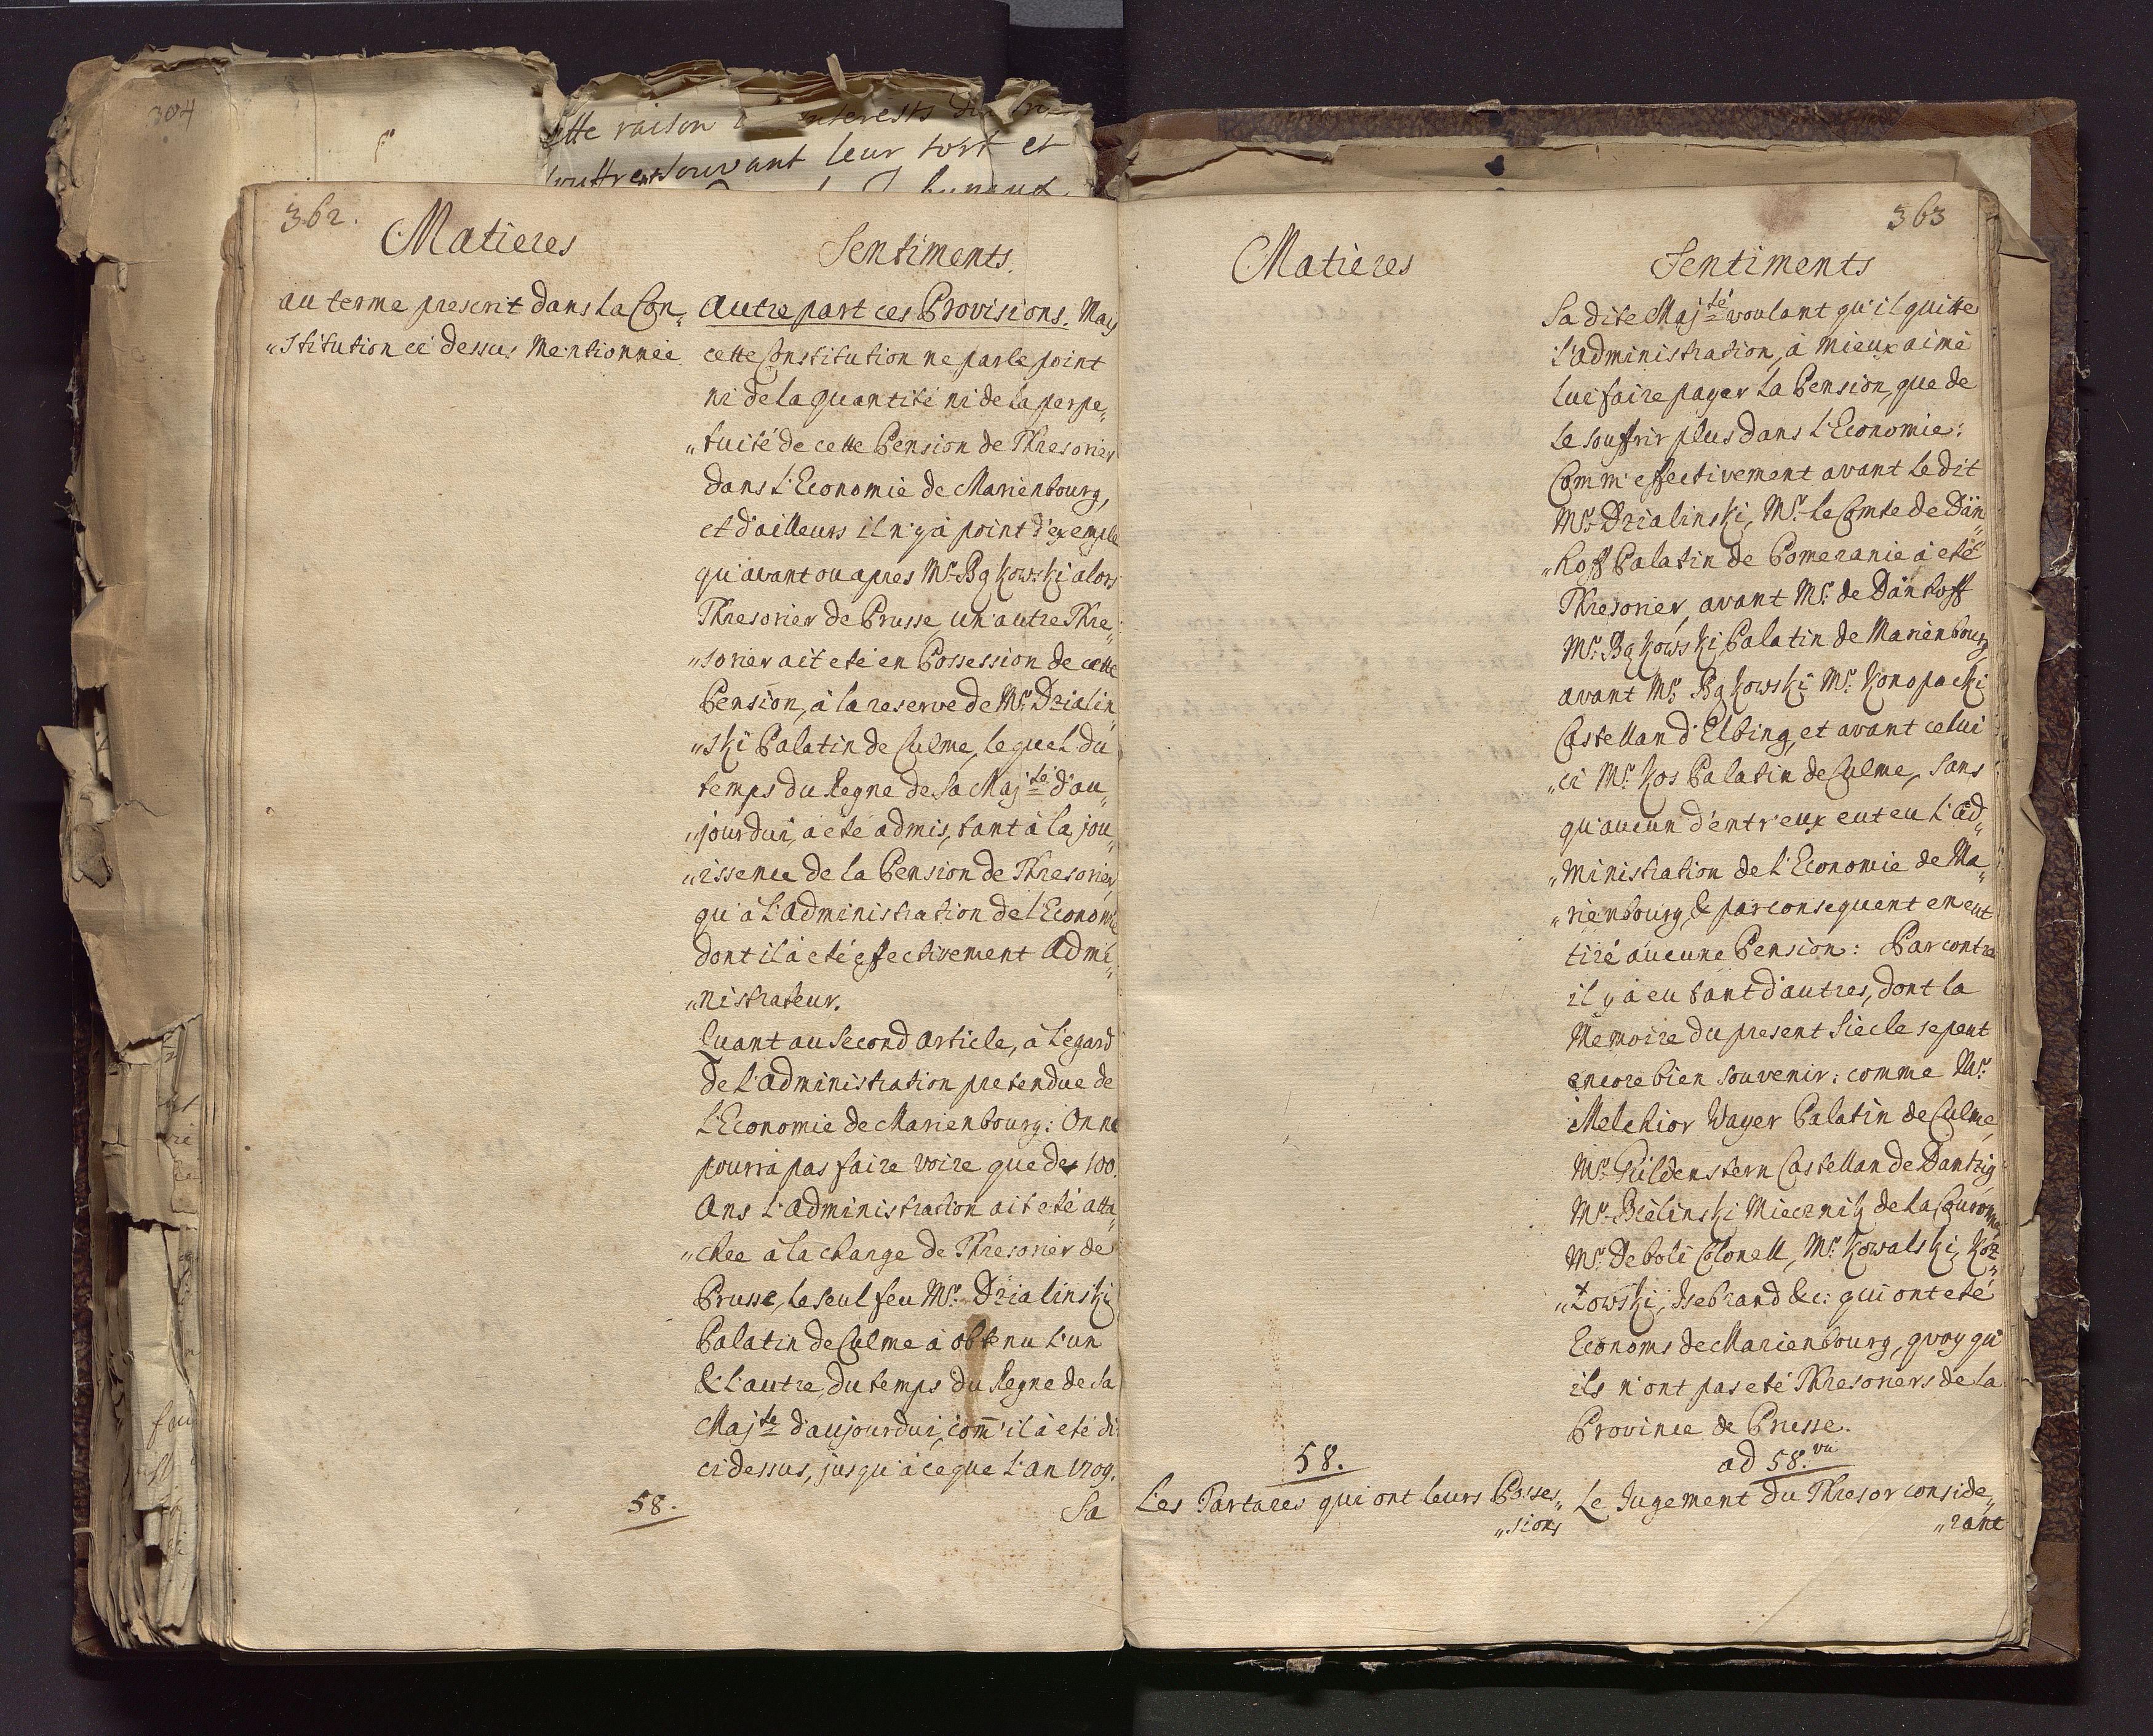 304
cette raison
souvant leur tort et
362.
Matieres
au terme prescrit dans la Con„
„stitution ci dessus Mentionnée
Sentiments.
Autre part ces Provisions. Mais
cette Constitution ne parle point
ni de la quantité ni de la perpe„
„tuité de cette Pension de Thresorier
dans L'Economie de Marienbourg,
et d'ailleurs il n'y à point d'exemple
qu'avant ou apres Mr. Bąkowski alors
Thresorier de Prusse, un autre Thre„
„sorier ait eté en Possession de cette
Pension, à la reserve de Mr. Dzialin„
„ski Palatin de Culme, lequel du
temps du Regne de Sa Maj.té d'au„
„jourdui, à eté admis, tant à la jou„
„issence de la Pension de Thresorier,
qu'à L'Administration de l'Economie
dont il à eté effectivement Admi„
„nistrateur.
Quant au Second Article, à L'egard
de L'Administration pretendue de
L'Economie de Marienbourg: On ne
pourra pas faire voire que des 100.
Ans L'Administration ait eté atta„
„chée à la charge de Thresorier de
Prusse, le seul feu Mr. Dzialinski
Palatin de Culme à obtenu L'un
& L'autre, du temps du Regne de Sa
Maj.te d'aujourdui, com̅'il à eté di
ci dessus, jusqu'à ce que L'an 1709.
58.
Sa
363
Matières
58.
Les Tartares qui ont leurs Posses„
„sions
Sentiments
Sa dite Maj.té voulant qu'il quitte
L'Administration, à mieux aimé
lui faire payer la Pension, que de
le souffrir plus dans L'Economie:
Comm'effectivement avant le dit
Mr. Dzialinski, Mr. le Comte de Dän„
„hoff Palatin de Pomeranie à eté
Thresorier, avant Mr. de Dänhoff
Mr. Bąkowski Palatin de Marienbourg
avant Mr. Bąkowski Mr. Konopacki
Castellan d'Elbing, et avant celui
„ci Mr. Kos Palatin de Culme, Sans
qu'aucun d'entr'eux eut eu L'Ad„
„ministration de l'Economie de Ma„
„rienbourg, & par consequent en eut
tiré aucune Pension: Par contre
il y à eu tant d'autres, dont la
Memoire du present Siecle se peut
encore bien souvenir: comme Mr.
Melchior Wayer Palatin de Culme,
Mr. Güldenstern Castellan de Dantzig
Mr. Bielinski Miecznik de la Couronne,
Mr. Deboli Colonell, Mr. Kowalski, Koz„
„łowski, Isebrand &c: qui ont eté
Economs de Marienbourg, quoy qu'
ils n'ont pas eté Thresoriers de la
Province de Prusse.
ad 58.vu
Le Jugement du Thresor conside„
„rant